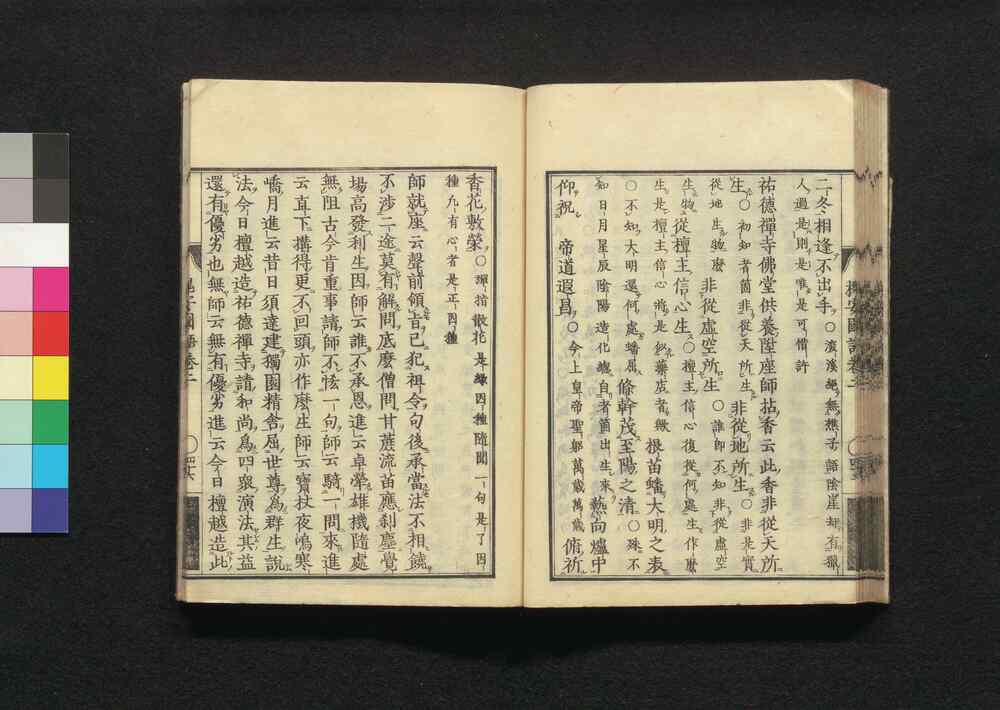 二冬相逢不出手○深溪絕無樵子語陰崖却有獵
人過是則是唯是可惜許
祐德禪寺佛堂供養陞座師拈香云此香非從天所
生○初知者箇非從天所生非從地所生○非是實
從地生物麼非從虛空所生○誰卽不知非從虛空
生物從檀主信心生○檀主信心後從何處生作麼
生是檀主信心將是鈔藥店者根苗蟠大明之表
○不知大明還何處蟠屈條幹茂至陽之清○殊不
知日月星辰陰陽造化總自者箇出生來爇向爐中
仰祝帝道遐昌○今上皇帝聖躬萬歲萬歲俯祈
香花敷榮○謂指散花是緣因種隨聞一句是了因
種凡有心者是正因種
師就座云聲前領旨已犯祖令句後承當法不相饒
不涉二途莫有解問底麼僧問甘蔗流苗應刹塵覺
場高發利生因師云誰不承恩進云卓犖雄機隨處
無阻古今肯重事請師不恡一句師云騎一問來進
云直下搆得更不回頭亦作麼生師云寶杖夜鳴寒
嶠月進云昔日須達建獨園精舍屈世尊爲群生說
法今日檀越造祐德禪寺請和尚爲四衆演法其益
還有優劣也無師云無有優劣進云今日檀越造此